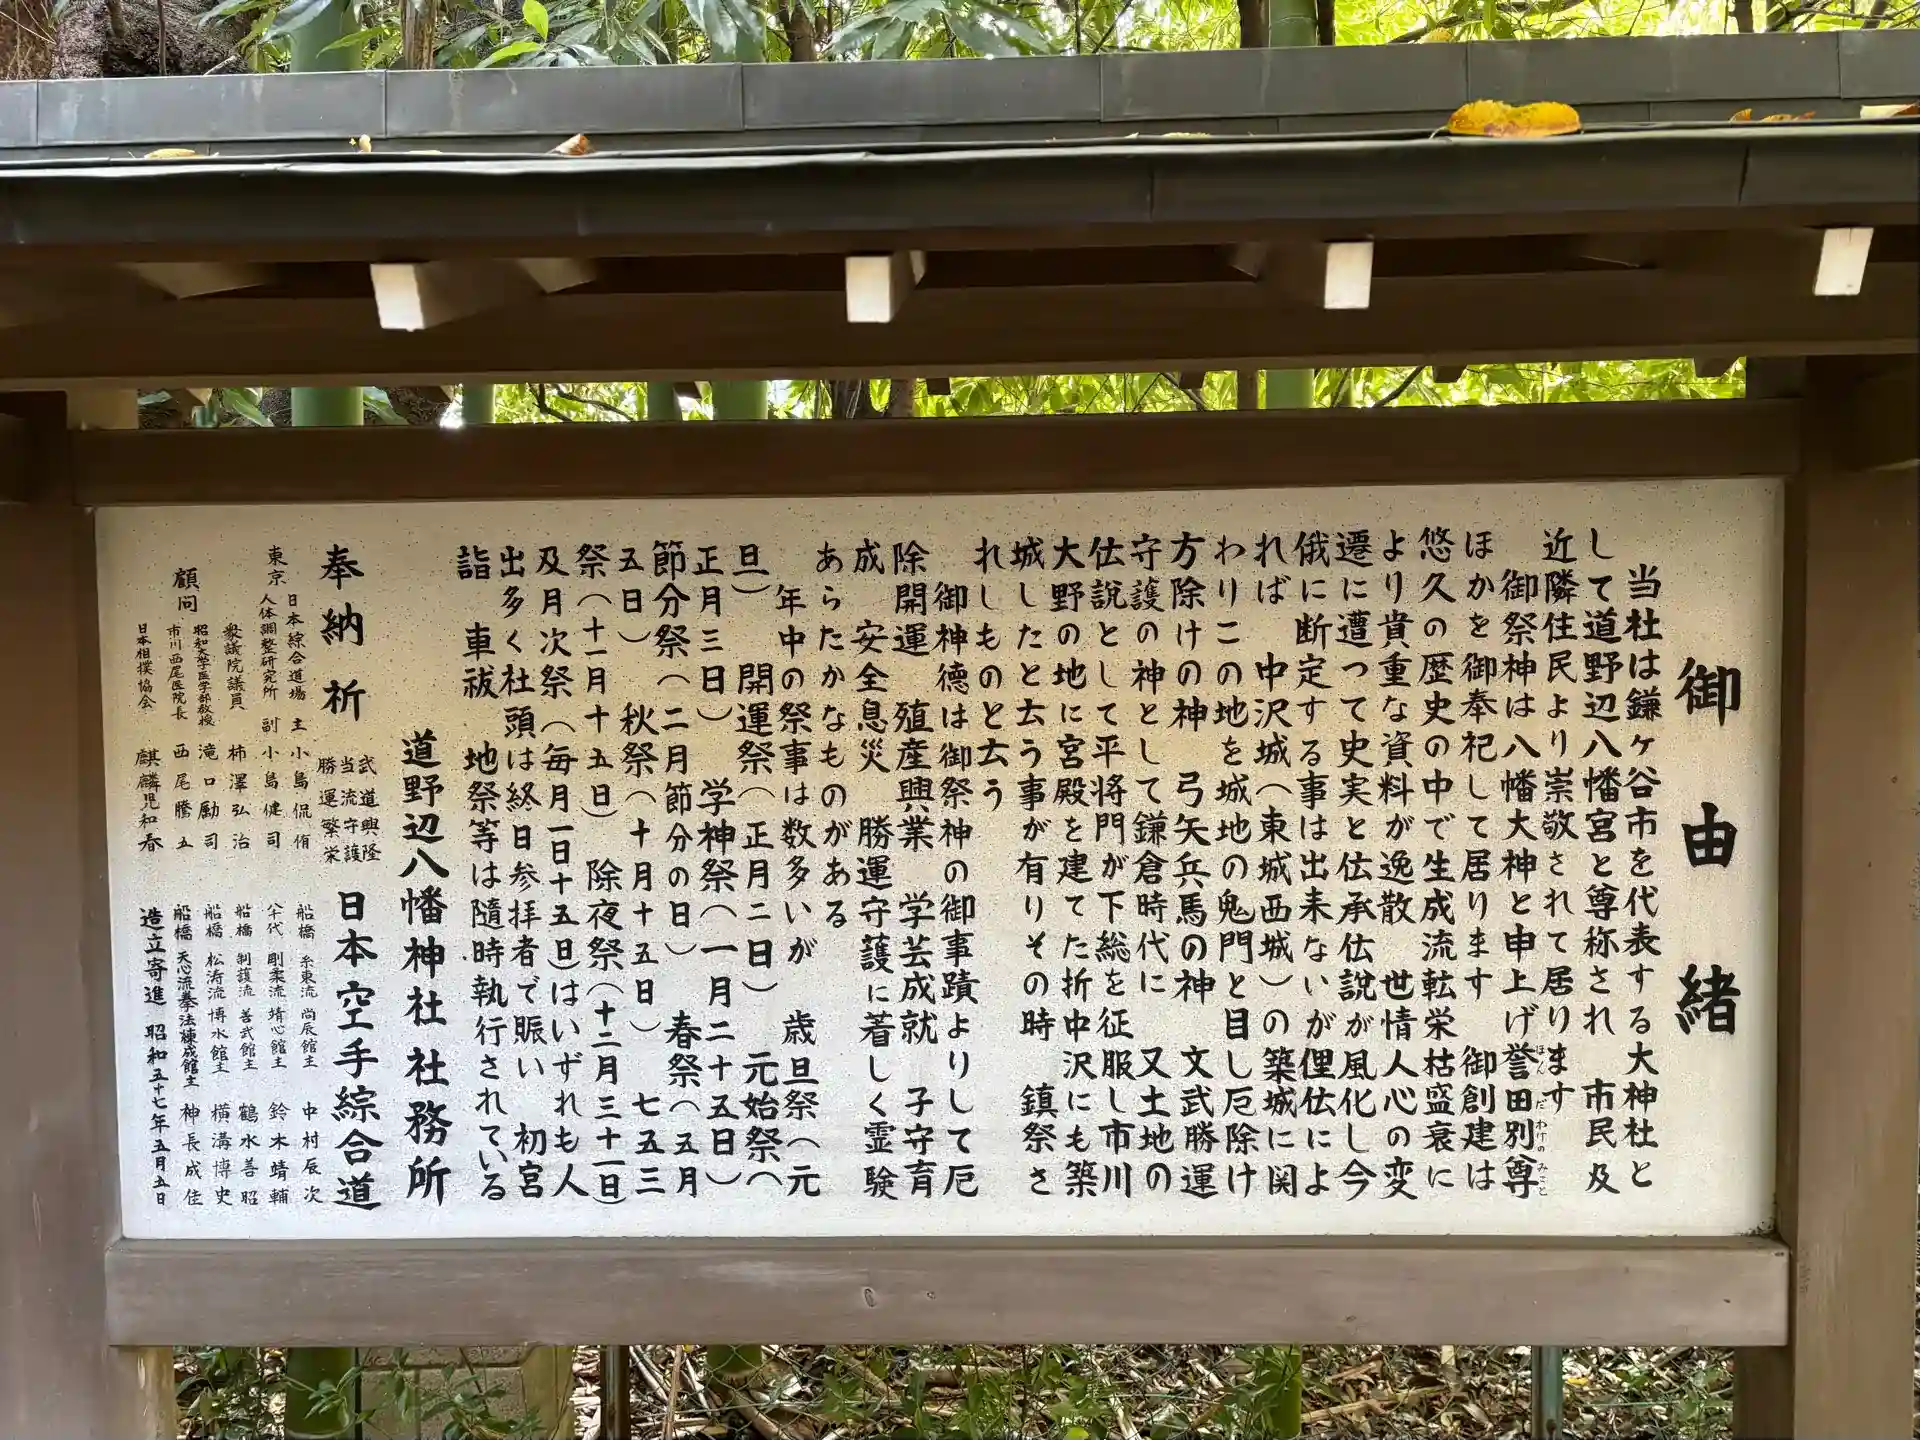 御由緒
当社は鎌ヶ谷市を代表する大神社と
して道野辺八幡宮と尊称され 市民及
近隣住民より崇敬されて居ります
御祭神は八幡大神と申上げ誉田別尊
ほんだわけのみこと
ほかを御奉祀して居ります 御創建は
悠久の歴史の中で生成流転栄枯盛衰に
より貴重な資料が逸散 世情人心の変
遷に遭つて史実と伝承伝説が風化し今
俄に断定する事は出来ないが俚伝によ
れば 中沢城(東城西城)の築城に関
わりこの地を城地の鬼門と目し厄除け
方除けの神 弓矢兵馬の神 文武勝運
守護の神として鎌倉時代に 又土地の
伝説として平将門が下総を征服し市川
大野の地に宮殿を建てた折中沢にも築
城したと云う事が有りその時 鎮祭さ
れしものと云う
御神德は御祭神の御事蹟よりして厄
除開運 殖産興業 学芸成就 子守育
成 安全息災 勝運守護に着しく霊験
あらたかなものがある
年中の祭事は数多いが 歳旦祭(元
旦) 開運祭(正月二日) 元始祭(
正月三日) 学神祭(一月二十五日)
節分祭(二月節分の日) 春祭(五月
五日) 秋祭(十月十五日) 七五三
祭(十一月十五日) 除夜祭(十二月三十一日)
及月次祭(毎月一日十五日)はいずれも人
出多く社頭は終日参拝者で賑い 初宮
詣 車祓 地祭等は随時執行されている
道野辺八幡神社 社務所
奉納 祈 武道興隆 当流守護 勝運繁栄 日本空手綜合道
日本綜合道場 主 小島侃侑
東京 人体調整研究所 副 小島健司
衆議院議員 柿澤弘治
昭和大学医学部教授 滝口勵司
顧問 市川西尾医院長 西尾騰五
日本相撲協会 麒麟児和春
船橋 糸東流 尚辰館主 中村辰次
八千代 剛柔流 靖心館主 鈴木靖輔
船橋 制護流 善武館主 鶴水善昭
船橋 松涛流 博水館主 横溝博史
船橋 天心流拳法練成館主 神長成佳
造立寄進 昭和五十七年五月五日